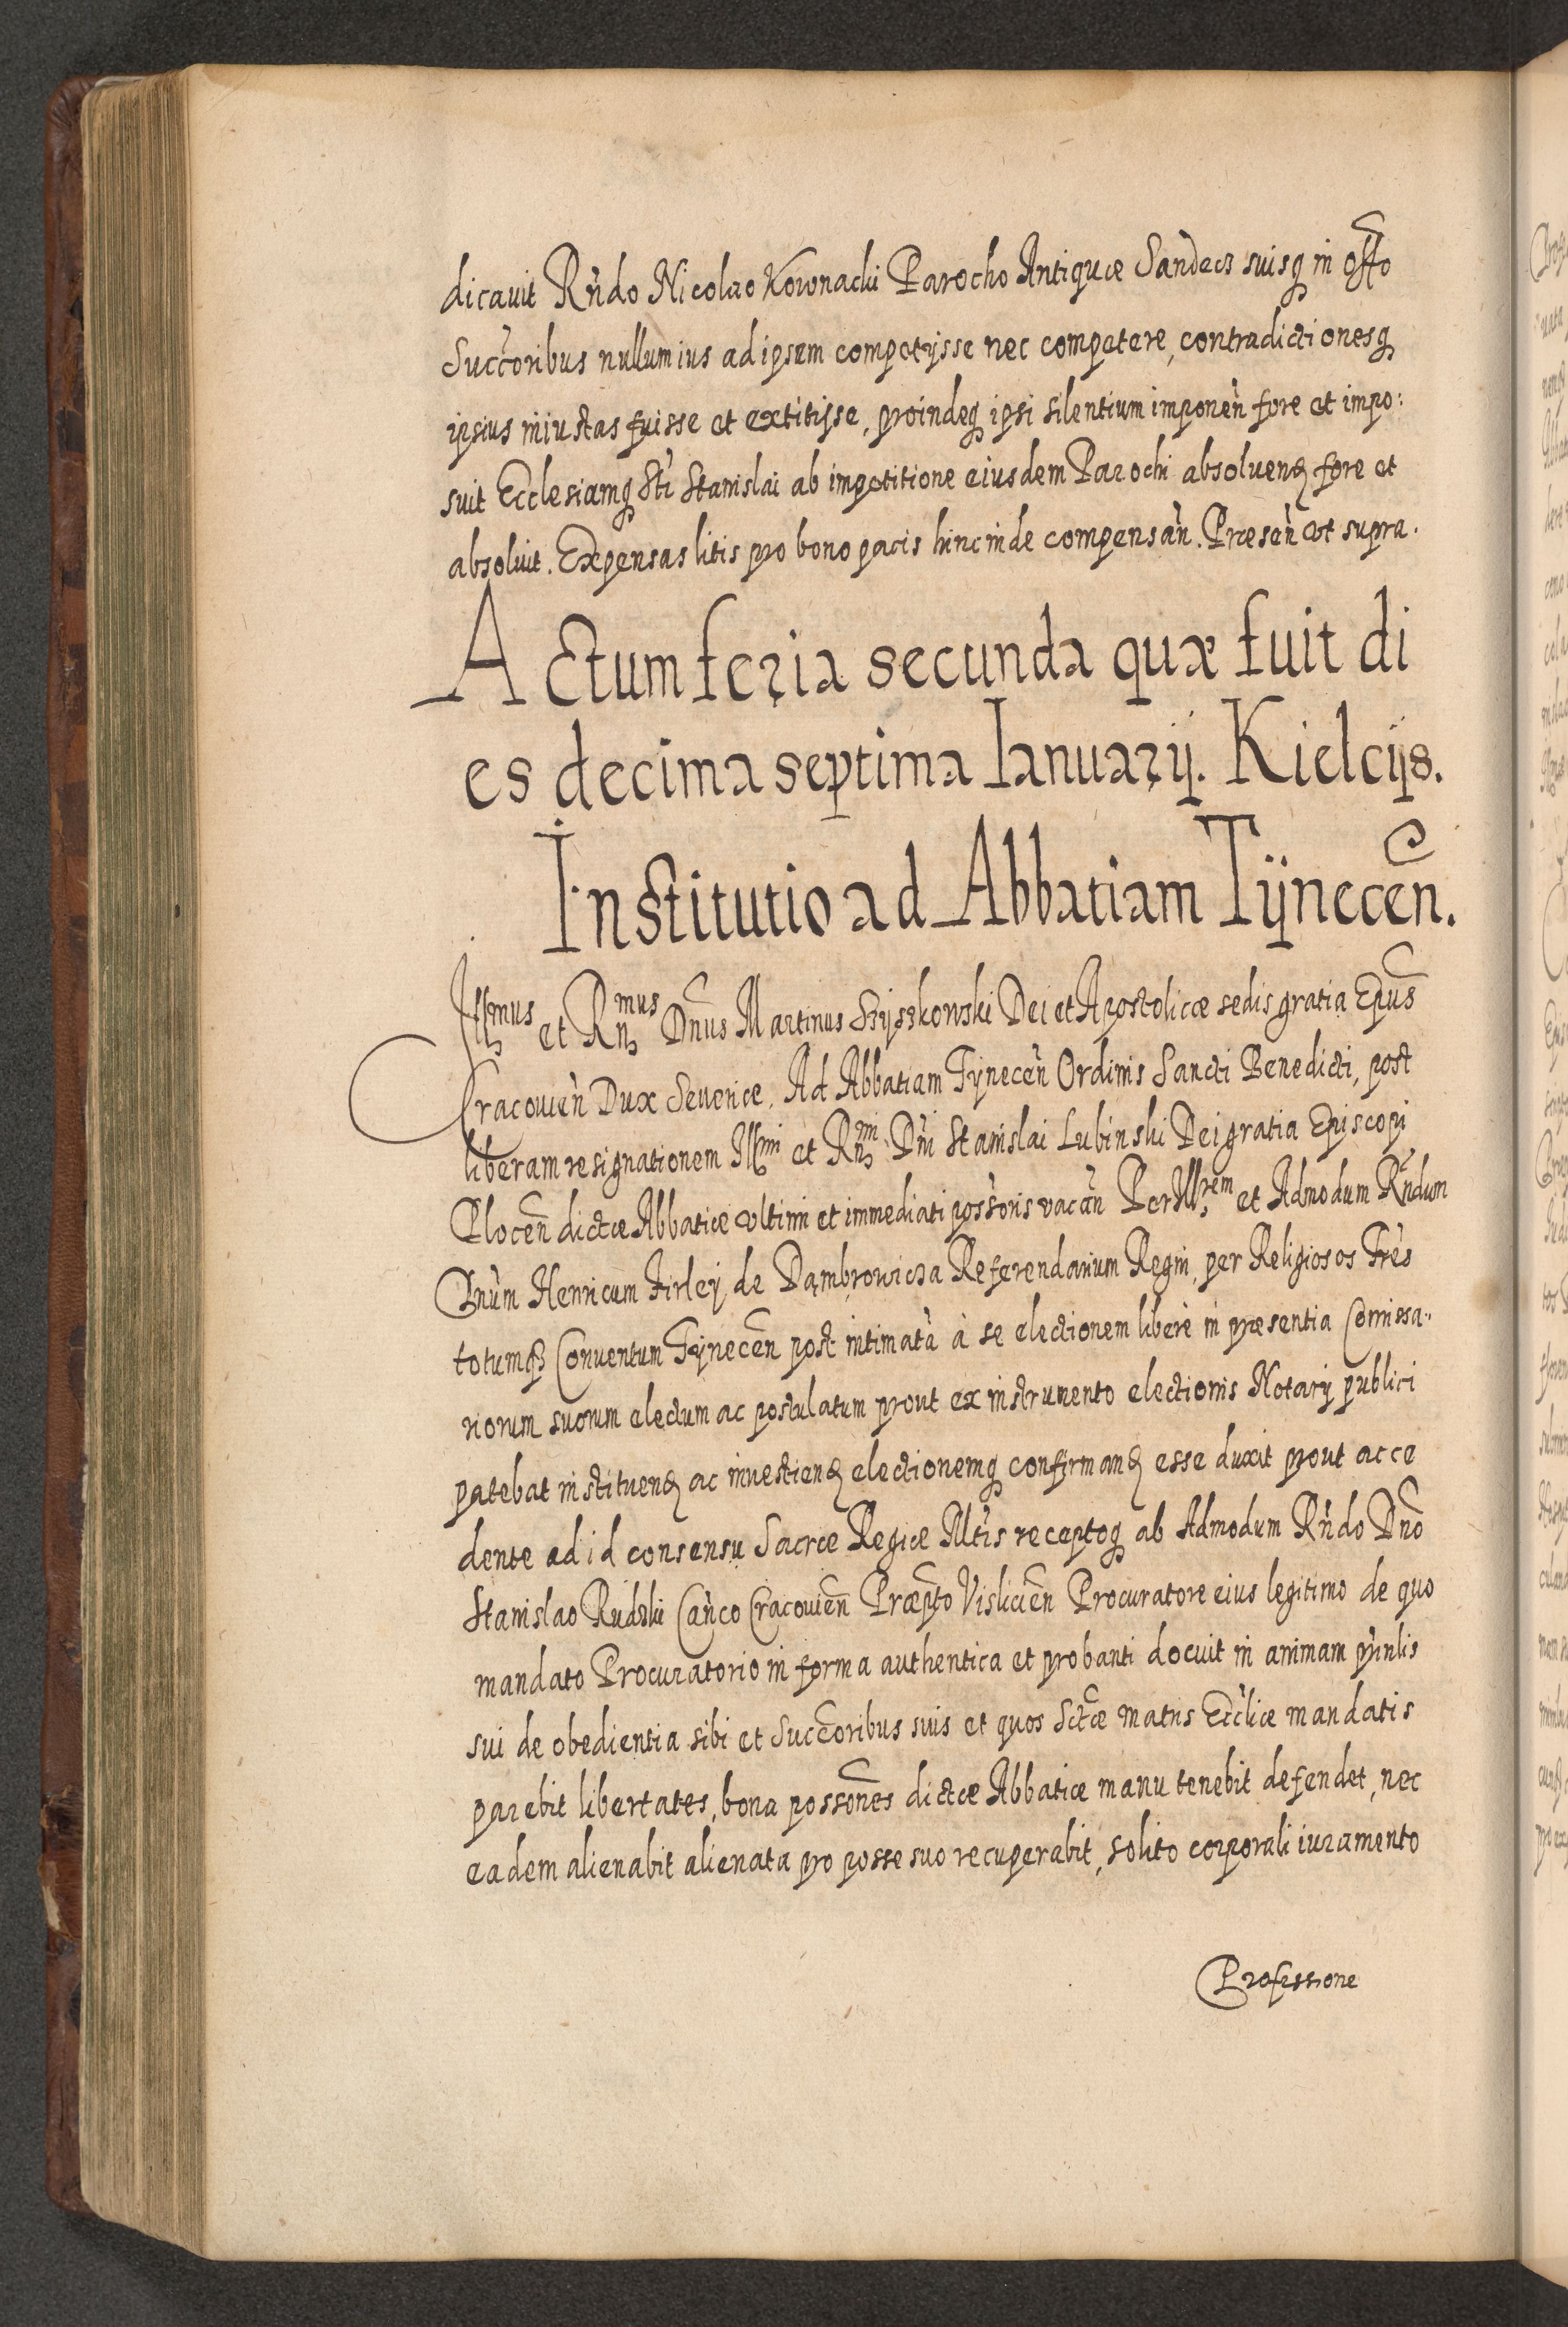 dicauit Rndo Nicolao Koronacki Parocho Antiquæ Sandecz suisq in offo
Succoribus nullum ius ad ipsam competijsse nec competere, contradictionesq
ipsius iniustas fuisse et extitisse, proindeq ipsi silentium imponen fore et impo:
suit Ecclesiamq Sti Stanislai ab impetitione eiusdem Parochi absoluend fore et
absoluit. Expensas litis pro bono pacis hinc inde compensan. Præsen vt supra.
Actum feria secunda quæ fuit di
es decima septima Ianuarij. Kielcijs.
Institutio ad Abbatiam Tÿnecen.
Illmus et Rnmus Dnus Martinus Szÿszkowski Dei et Apostolicæ sedis gratia Epus
Cracouien Dux Seueriæ. Ad Abbatiam Tÿnecen Ordinis Sancti Benedicti, post
liberam resignationem Illmi et Rnmi Dni Stanislai Lubinski Dei gratia Episcopi
Plocen dictæ Abbatiæ vltimi et immediati possoris vacan Per Illrem et Admodum Rndum
Dnum Henricum Firleÿ de Dąmbrowicza Referendarium Regni, per Religiosos Fres
totumq Conuentum Tÿnecen post intimata à se electionem liberè in præsentia Comissa-
riorum suorum electum ac postulatum prout ex instrumento electionis Notarij publici
patebat instituend ac inuestiend electionemq confirmand esse duxit prout acce
dente ad id consensu Sacræ Regiæ Mtis receptoq ab Admodum Rndo Dno
Stanislao Rudski Canco Cracouien Præpto Vislicien Procuratore eius legitimo de quo
mandato Procuratorio in forma authentica et probanti docuit in animam prinlis
sui de obedientia sibi et Succoribus suis et quos Sctæ matris Eccliæ mandatis
parebit libertates, bona possones dictæ Abbatiæ manu tenebit defendet, nec
eadem alienabit alienata pro posse suo recuperabit, solito corporali iuramento
Professione